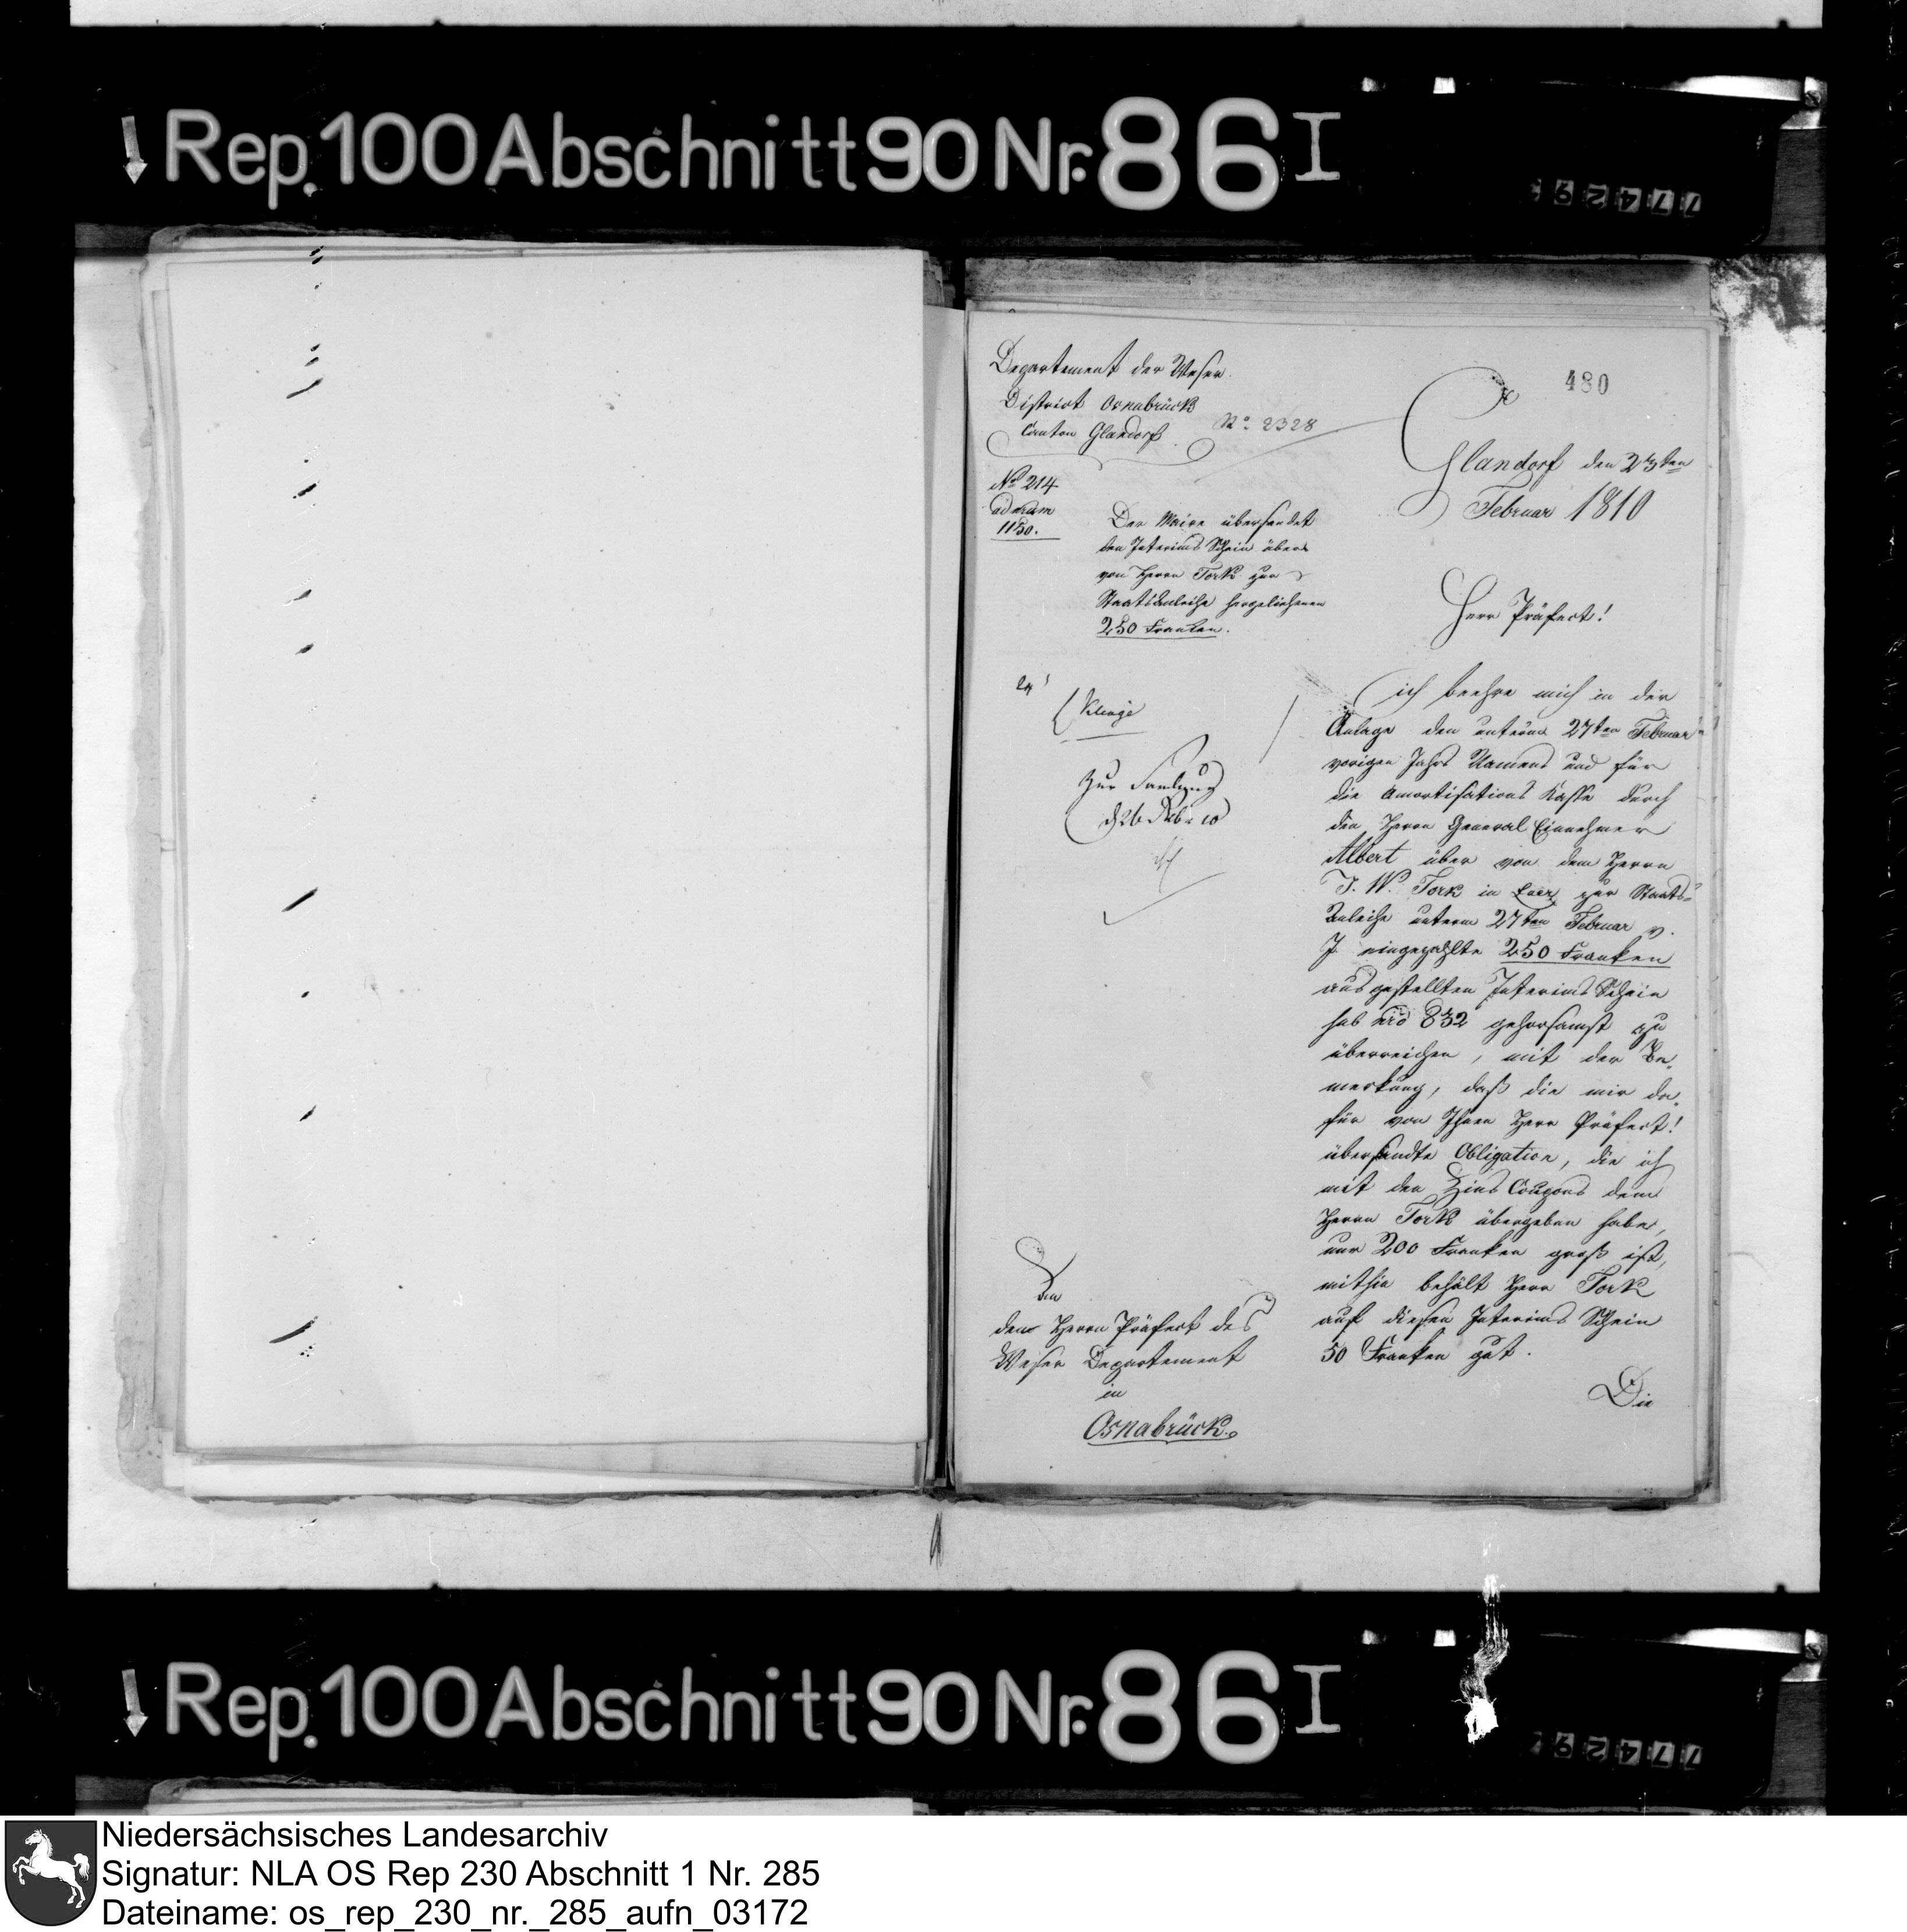 Rep. 100 Abschnitt 90 Nr. 86 I
77429
480
Departement der Weser.
District Osnabrück
Canton Glandorf
No. 2328
Glandorf den 25ten
Februar 1810
No 214
ad num
1150.
Der Maire übersendet
den Interims Schein über
von Herrn Tork zur
Staats Anleihe hergeliehenen
250 Franken.
Herr Präfect!
Klenze
Zur Samlung
ich beehre mich in der
Anlage den unterm 27ten Februar
vorigen Jahrs Namens und für
die Amortisations Kasse durch
den Herrn General Einnehmer
Albert über von dem Herrn
J. W. Tork in zur Staats-
Anleihe unterm 27ten Februar v.
J. eingezahlte 250 Franken
ausgestellten Interims Schein
sub nro 832 gehorsamst zu
überreichen, mit der Be-
merkung, daß die mir da-
für von Ihnen Herr Präfect!
übersandte Obligation, die ich
mit den Zins Coupons dem
Herrn Tork übergeben habe,
nur 200 Franken groß ist,
mithin behält Herr Tork
auf diesen Interims Schein
50 Franken gut.
Die
An
den Herrn Präfect des
Weser Departement
in
Osnabrück.
Rep. 100 Abschnitt 90 Nr. 86 I
77429
Niedersächsisches Landesarchiv
Signatur: NLA OS Rep 230 Abschnitt 1 Nr. 285
Dateiname: os_rep_230_nr._285_aufn_03172